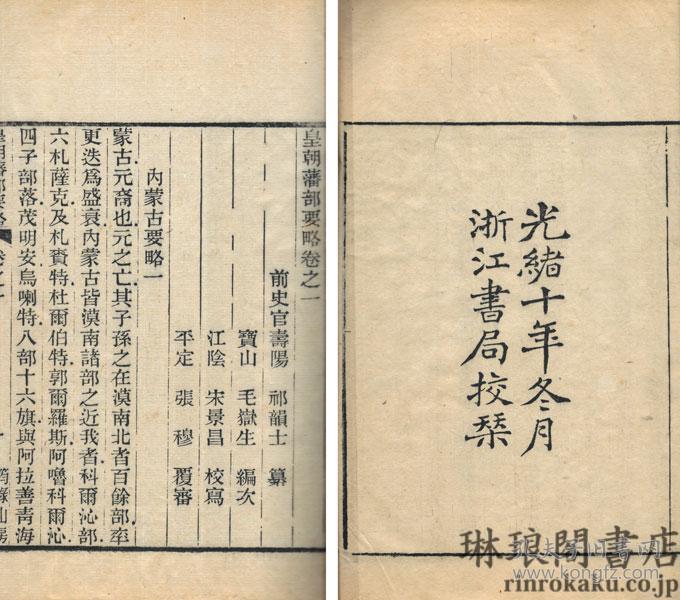 光緒十年冬月
浙江書局校栞
皇朝藩部要略卷之一
前史官壽陽 祁韻士 纂
寶山 毛嶽生 編次
江陰 宋景昌 校寫
平定 張穆 覆審
內蒙古要略一
蒙古元裔也元之亡其子孫之在漠南北者百餘部率
更迭爲盛衰內蒙古皆漠南諸部之近我者科爾沁部
六札薩克及札賚特杜爾伯特郭爾羅斯阿嚕科爾沁
四子部落茂明安烏喇特八部十六旗與阿拉善青海
琳琅閣書店
www.kongfz.com
rinrokaku.co.jp